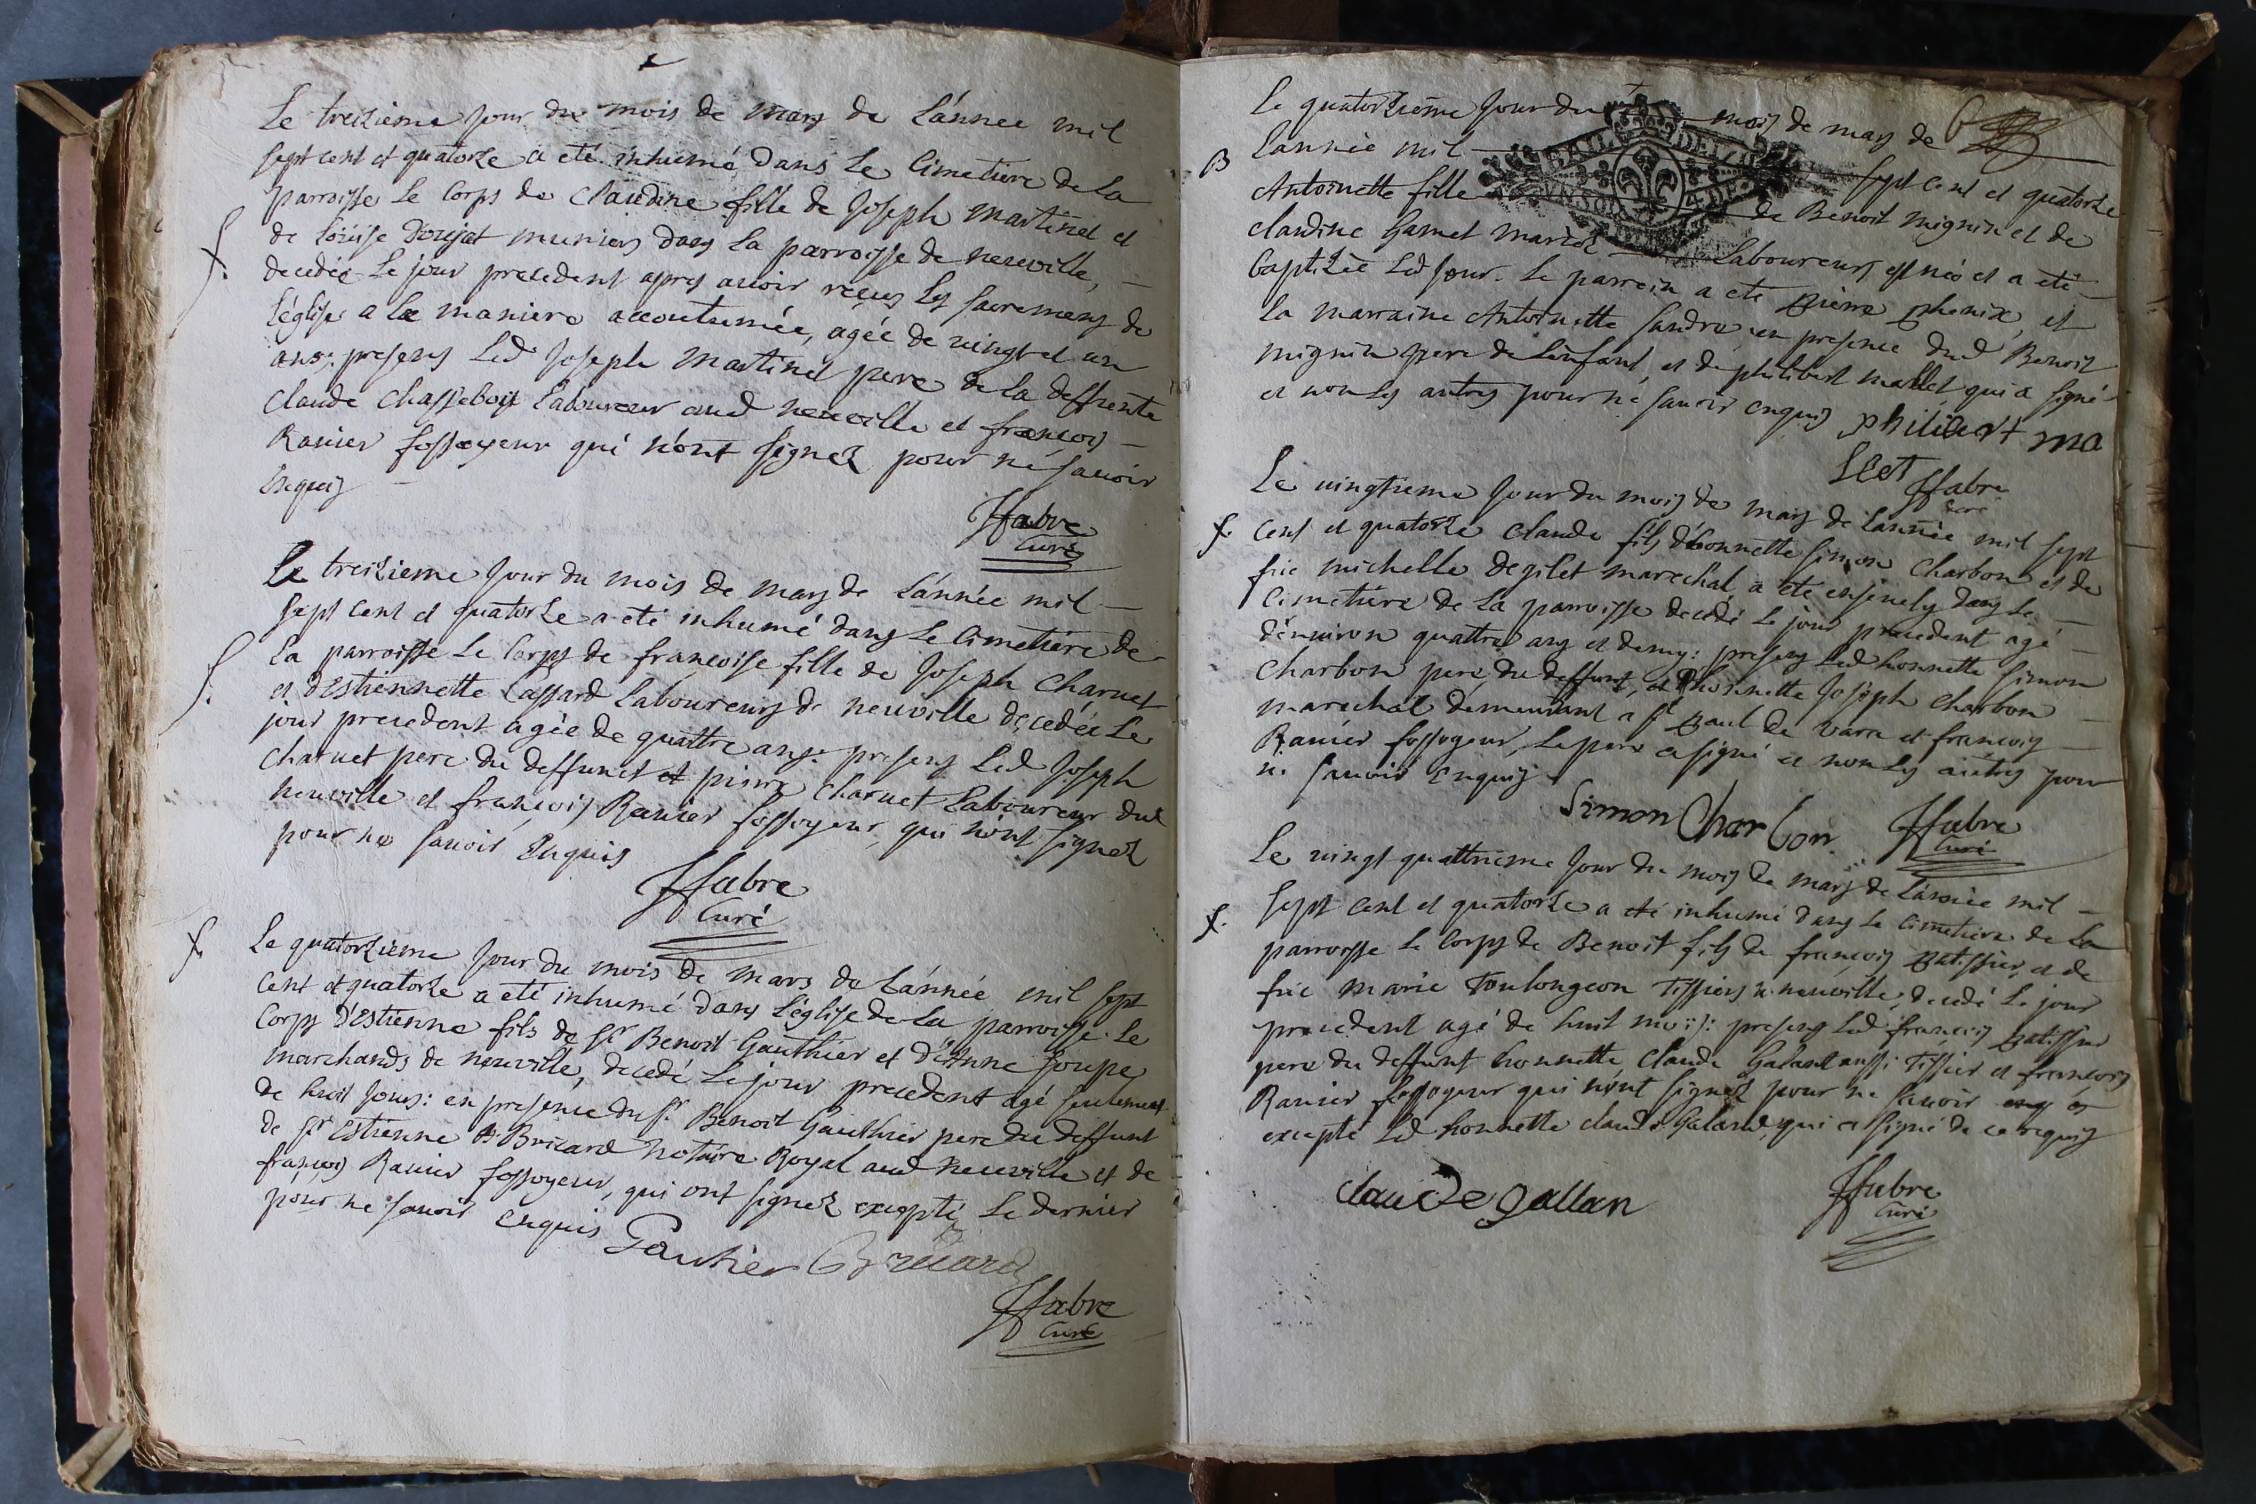 Le treizieme jour du mois de mars de L'année mil
sept cent et quatorze a eté inhumé dans Le Cimetiere de La
parroisse Le Corps de Claudine fille de Joseph Martinet et
f. de Loüise muniers dans La parroisse de neuville,
decedée Le jour precedent apres avoir reçus Les sacremens de
L'église a La maniere accoutumée, agée de vingt et un
ans: presens Led Joseph Martinet pere de La deffunte
Claude Chasseboys Laboureur aud neuville et françois
Ravier fossoyeur qui n'ont signez pour ne savoir
Enquis
ffabre
Curé
Le treizieme Jour du mois de mars de L'année mil
sept cent et quatorze a eté inhumé dans Le Cimetiere de
La parroisse Le Corps de françoise fille de Joseph Charvet
f. et d'Estiennette Cassard Laboureurs de neuville decedée Le
jour precedent agée de quattre ans: presens Led Joseph
Charvet pere du deffunct et pierre Charvet Laboureur dud
neuville et françois Ravier fossoyeur, qui n'ont signez
pour ne savoir Enquis
ffabre
Curé
f. Le quatorzieme Jour du mois de mars de L'année mil sept
Cent et quatorze a eté inhumé dans L'église de La parroisse Le
Corps d'Estienne fils de Sr Benoit Gauthier et d'Anne Soupe
marchands de neuville, decedé Le jour precedent agé seulement
de huit Jours: en presence du Sr Benoit Gauthier pere du deffunt
de Sr Estienne Bricard Notaire Royal aud Neuville et de
françois Ravier fossoyeur, qui ont signez excepté Le dernier
pour ne savoir enquis
Gautier Bricard
ffabre
Curé
6
Le quatorzieme Jour du mois de mars de
B L'année mil sept cent et quatorze
Antoinette fille de Benoit mignin et de
Claudine Gamet Mariez Laboureurs est née et a eté
baptizée Led jour. Le parrein a eté pierre phenix, et
La marraine Antoinette Sandre, en presence dud Benoit
mignin pere de L'enfant, et de philibert mallet, qui a signé
et non Les autres pour ne savoir enquis philibert ma
llet ffabre
Curé
Le vingtieme Jour du mois de mars de L'année mil sept
f. Cent et quatorze Claude fils d'honnette Simon Charbon et de
fue michelle degilet marechal a eté ensevely dans Le
Cimetiere de La parroisse decedé Le jour precedent agé
d'environ quattre ans et demy: presens Led honnette Simon
Charbon pere du deffunt, et honnette Joseph Charbon
marechal demeurant a St paul de vara et françois
Ravier fossoyeur, Le pere a signé et non Les autres pour
ne savoir Enquis
Simon Charbon ffabre
Curé
Le vingt quattrieme Jour du mois de mars de L'année mil
f. sept cent et quatorze a eté inhumé dans Le Cimetiere de La
parroisse Le Corps de Benoit fils de françois patissier, et de
fue Marie Toulongeon Tissiers de neuville, decedé Le jour
precedent agé de huit mois: presens Led françois patissier
pere du deffunt honnette Claude Galand aussi Tissier et françois
Ravier fossoyeur qui n'ont signez pour ne savoir
excepté Led honnette Claude Galand qui a signé de ce requis
claude gallan ffabre
Curé